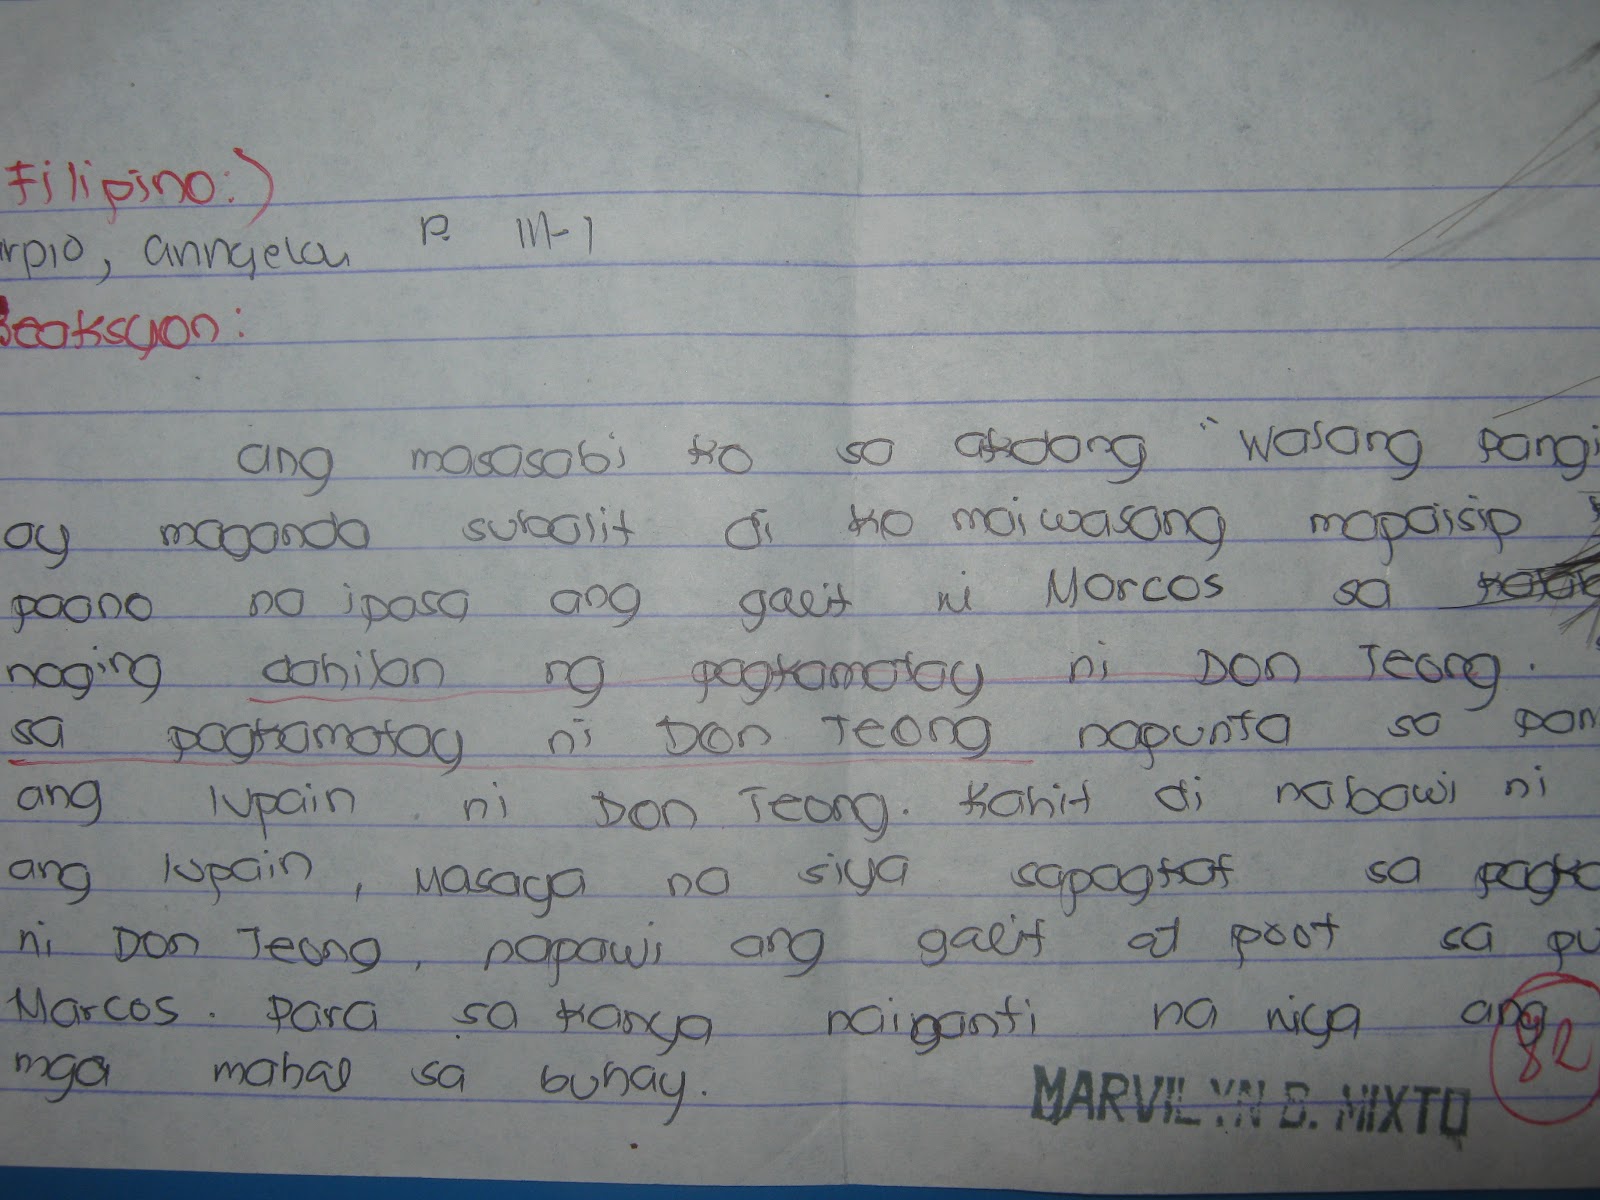 Filipino:)
rpio, anngela P. III-1
Reaksyon:
ang masasabi ko sa akdang "Walang Pangi
ay maganda subalit di ko maiwasang mapaisip
paano na ipasa ang galit ni Marcos sa
naging dahilan ng pagkamatay ni Don Teong.
sa pagkamatay ni Don Teong napunta sa pam
ang lupain ni Don Teong. Kahit di nabawi ni
ang lupain, Masaya na siya sapagkat sa pagka
ni Don Teong, napawi ang galit at poot sa pu
Marcos. Para sa kanya naiganti na niya ang
mga mahal sa buhay.
82
MARVILYN B. MIXTO